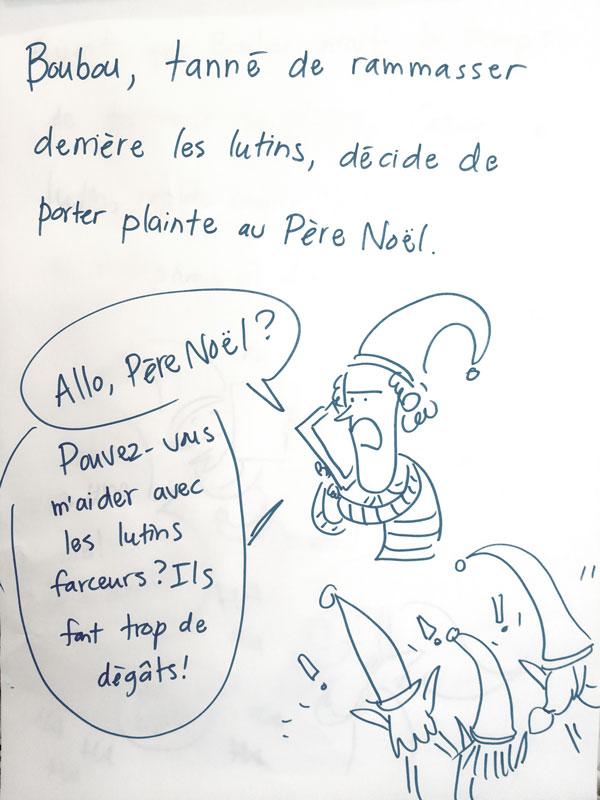 Boubou, tanné de rammasser
derrière les lutins, décide de
porter plainte au Père Noël.
Allo, Père Noël?
Pouvez-vous
m'aider avec
les lutins
farceurs? Ils
font trop de
dégâts!
!
!
!